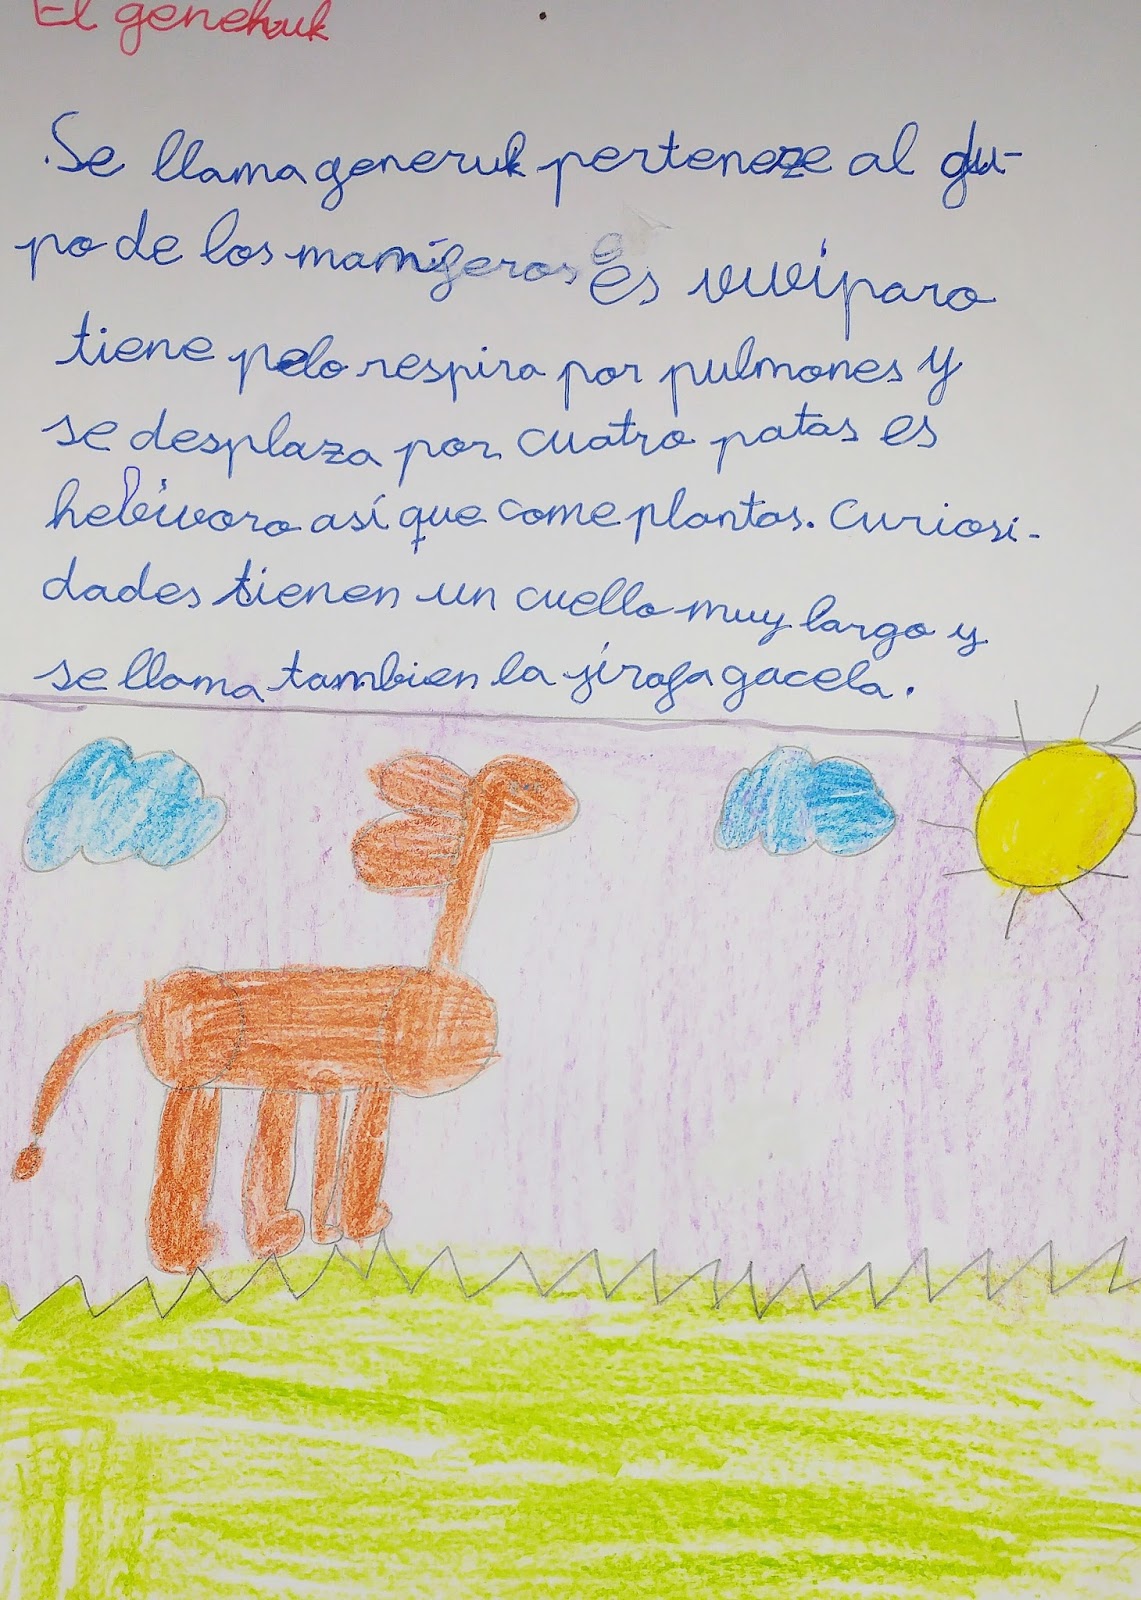 El genehuk
Se llama generuk perteneze al gru-
po de los mamíferos es vivíparo
tiene pelo respira por pulmones y
se desplaza por cuatro patas es
hebívoro así que come plantas. Curiosi-
dades tienen un cuello muy largo y
se llama tambien la jirafa gacela.